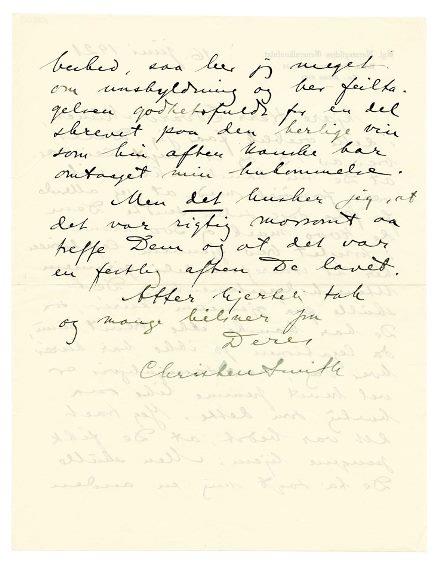 beshed, saa ber jeg meget
om unskyldning og ber feilta-
gelsen godhetsfuldt for en del
skrevet paa den herlige vin
som hin aften kanske har
omtaaget min hukommelse.
Men det husker jeg, at
det var rigtig morsomt aa
treffe Dem og at det var
en festlig aften De lavet.
Atter hjertelig tak
og mange hilsner fra
Deres
Christen Smith